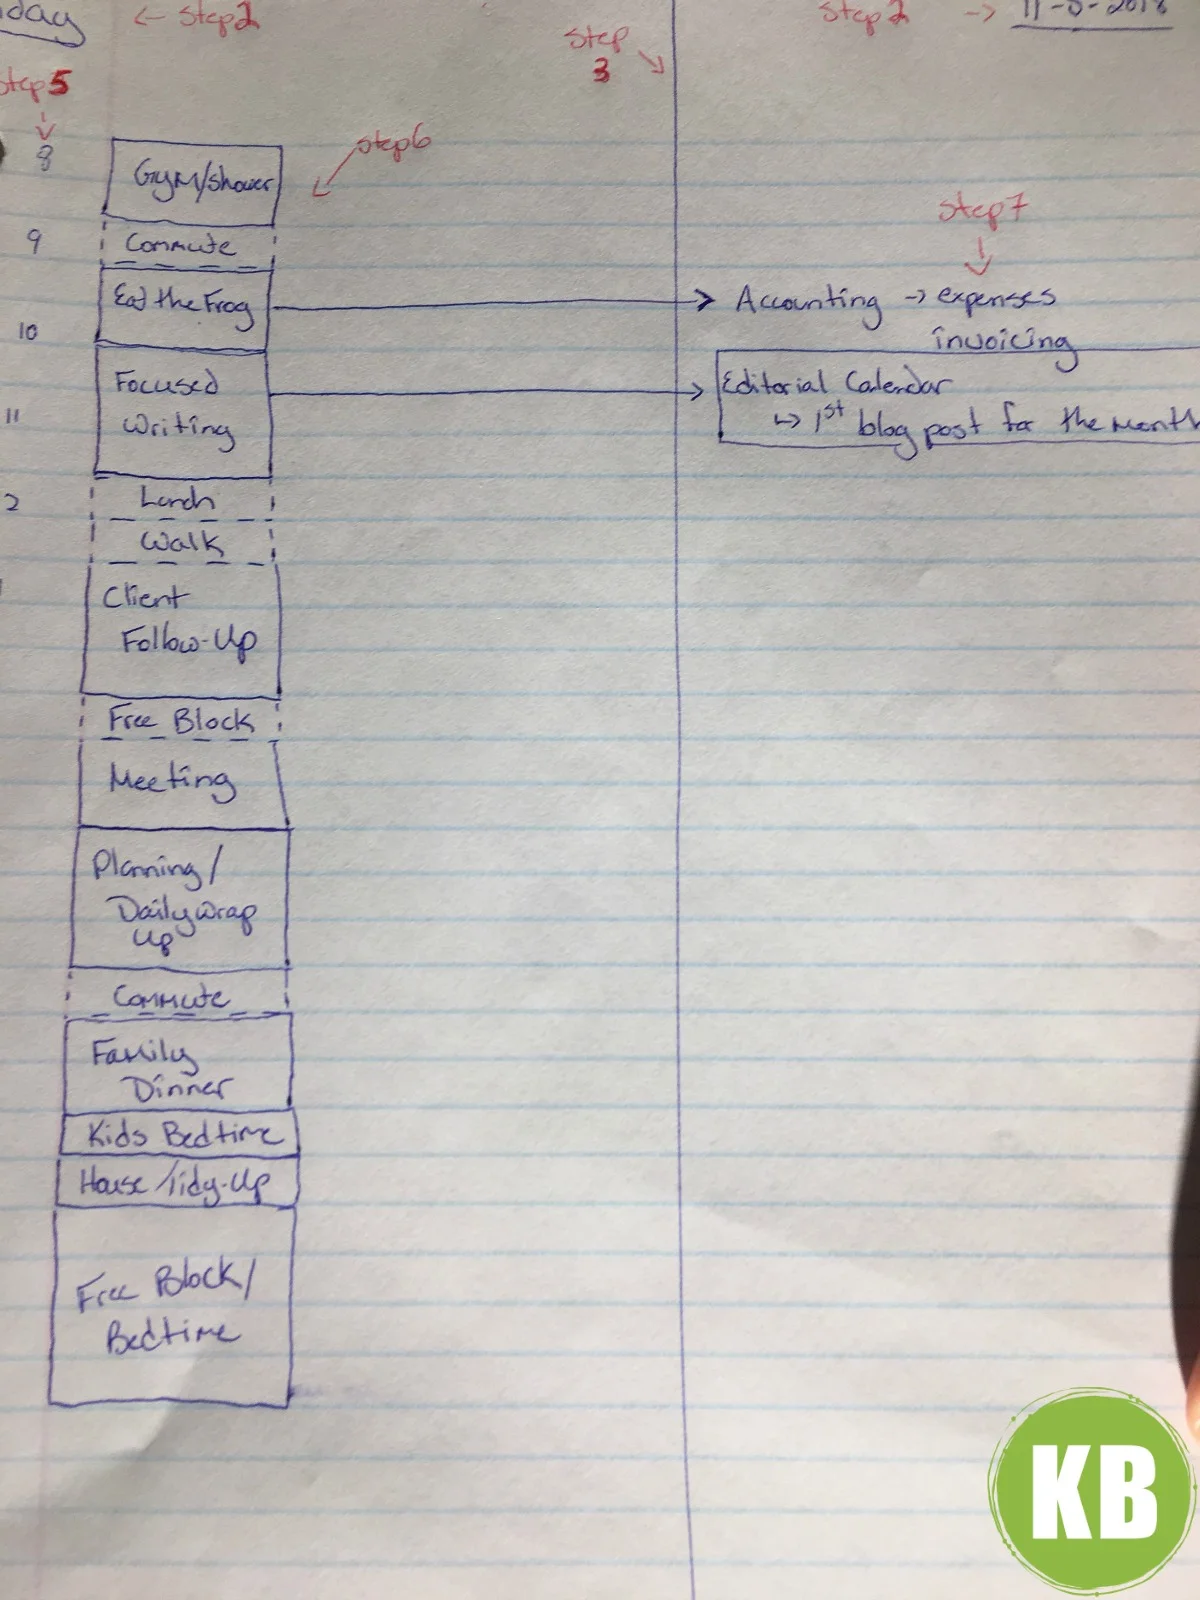 day ← Step2 Step2 → 11-5-2018
Step
3
Step5
8 Gym/shower Step6
Step7
9 Commute
Eat the Frog → Accounting → expenses
10 invoicing
Focused Editorial Calendar
11 Writing ↳ 1st blog post for the Month
2 Lunch
Walk
Client
Follow-Up
Free Block
Meeting
Planning/
Daily wrap
Up
Commute
Family
Dinner
Kids Bedtime
House/Tidy-Up
Free Block/
Bedtime
KB